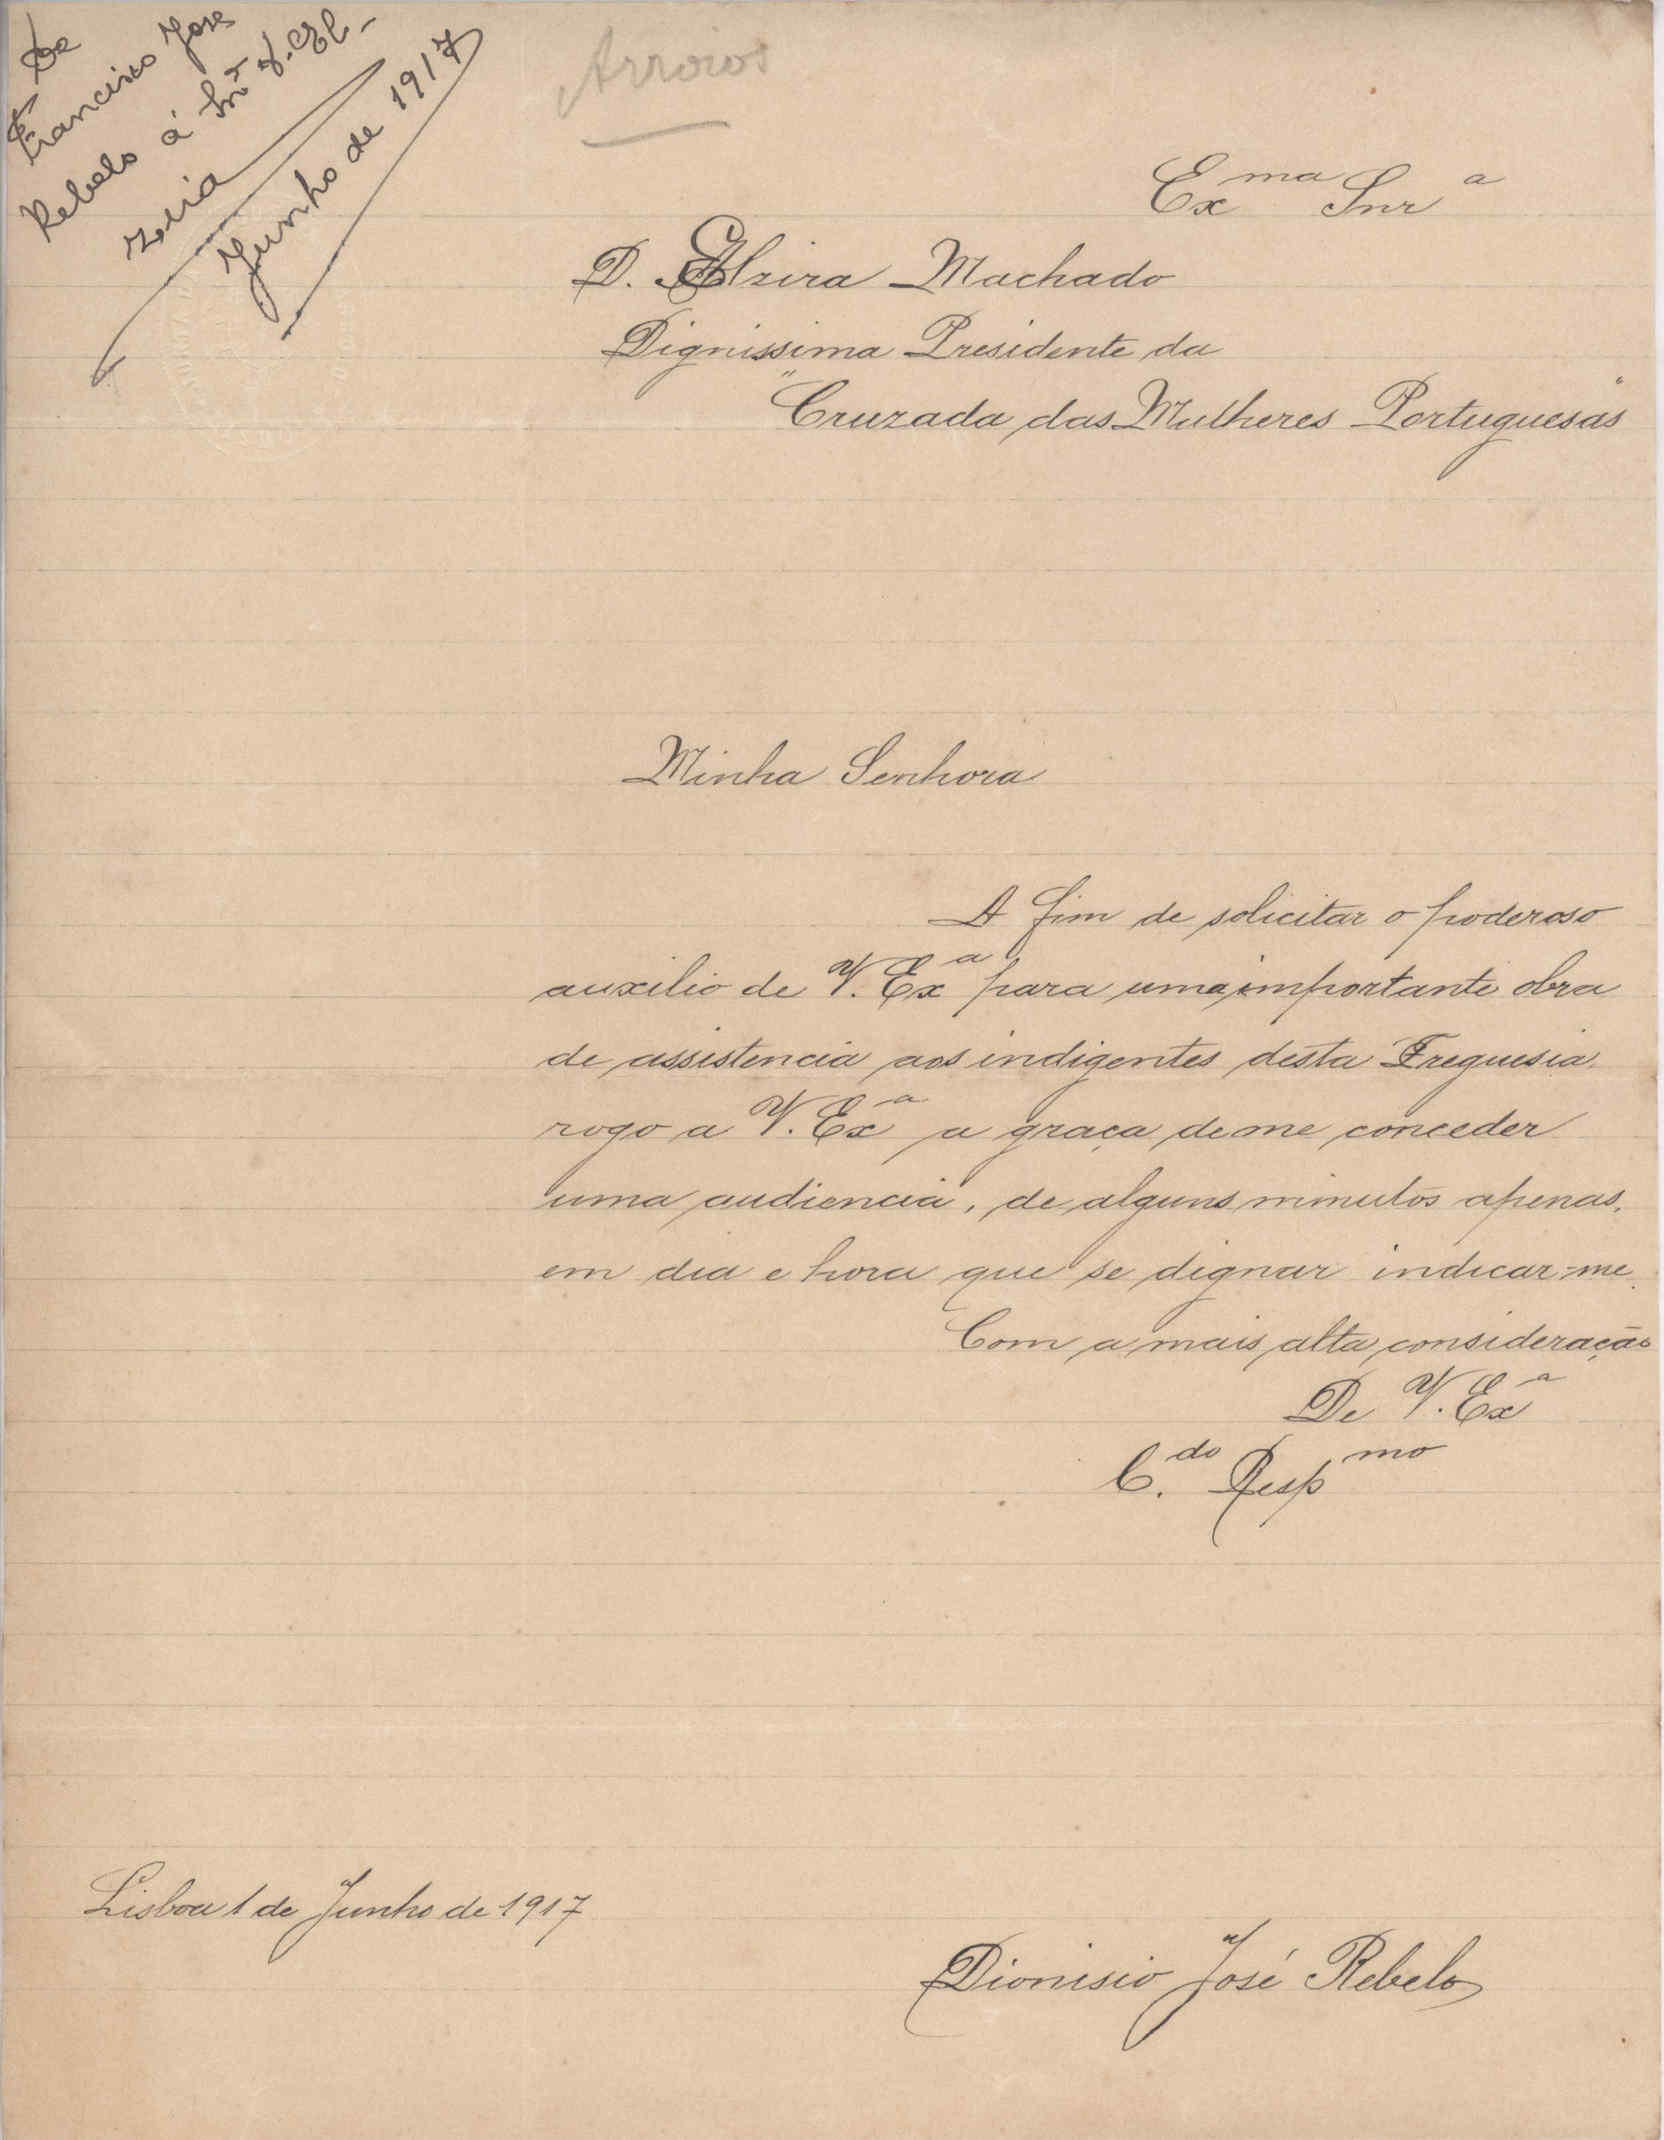 De
Francisco Jose
Rebelo á Snrª D. El-
zira
Junho de 1917
Arroios
Exma Snra
D. Elzira Machado
Dignissima Presidente da
"Cruzada das Mulheres Portuguesas"
Minha Senhora
A fim de solicitar o poderoso
auxilio de V. Exa para uma importante obra
de assistencia aos indigentes desta Freguesia.
rogo a V. Exa a graça de me conceder
uma audiencia, de alguns minutos apenas,
em dia e hora que se dignar indicar-me.
Com a mais alta consideração
De V. Exa
C.do Respmo
Lisboa 1 de Junho de 1917
Dionisio José Rebelo